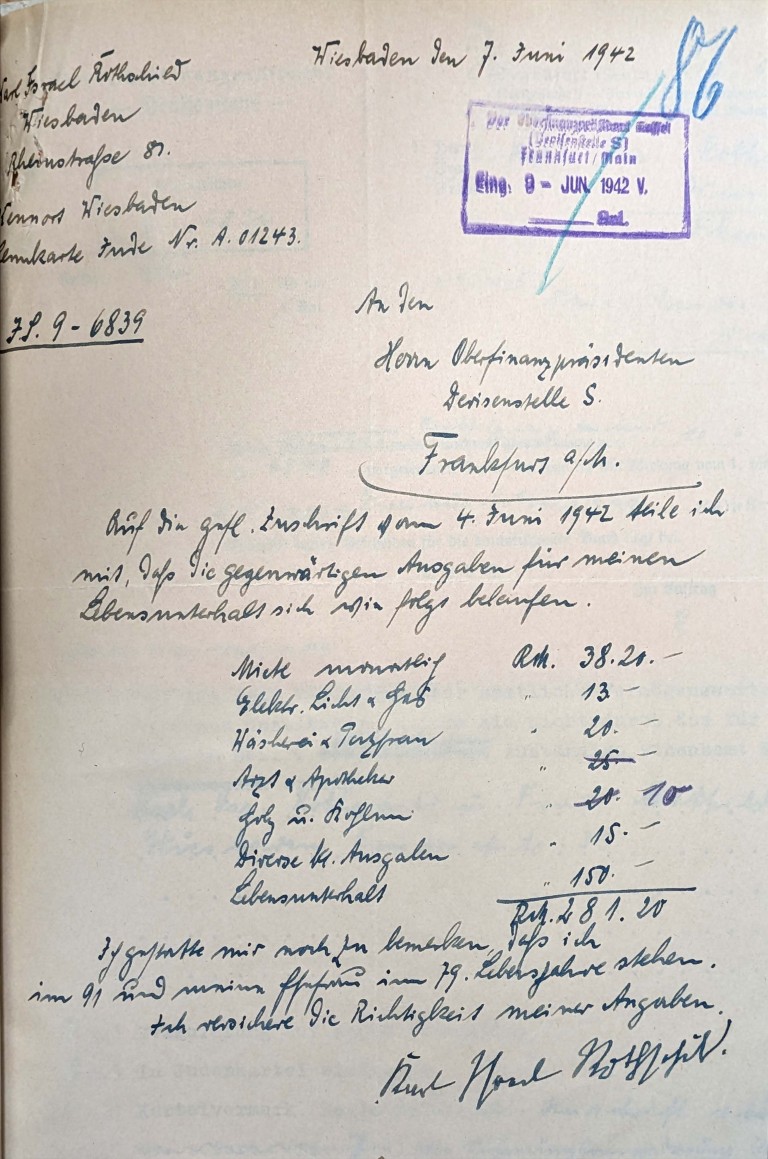 Wiesbaden den 7. Juni 1942
86
Karl Israel Rothschild
Wiesbaden
Rheinstraße 81.
Kennort Wiesbaden
Kennkarte Jude Nr. A.01243.
Der Oberfinanzpräsident Kassel
(Devisenstelle S)
Frankfurt/Main
Eing: 9 - JUN. 1942 V.
Anl.
J.S. 9 - 6839
An den
Herrn Oberfinanzpräsidenten
Devisenstelle S.
Frankfurt a/M.
Auf die gefl. Zuschrift vom 4. Juni 1942 teile ich
mit, daß die gegenwärtigen Ausgaben für meinen
Lebensunterhalt sich wie folgt belaufen.
Miete monatlich Rm. 38.20.-
Elektr. Licht & Gas " 13 -
Wäscherei & Putzfrau " 20. -
Arzt & Apotheker " 25 -
Holz u. Kohlen " 20. 10
Diverse kl. Ausgaben " 15. -
Lebensunterhalt " 150. -
Rm. 281.20
Ich gestatte mir noch zu bemerken, daß ich
im 91 und meine Ehefrau im 79. Lebensjahre stehen.
Ich versichere die Richtigkeit meiner Angaben.
Karl Israel Rothschild.